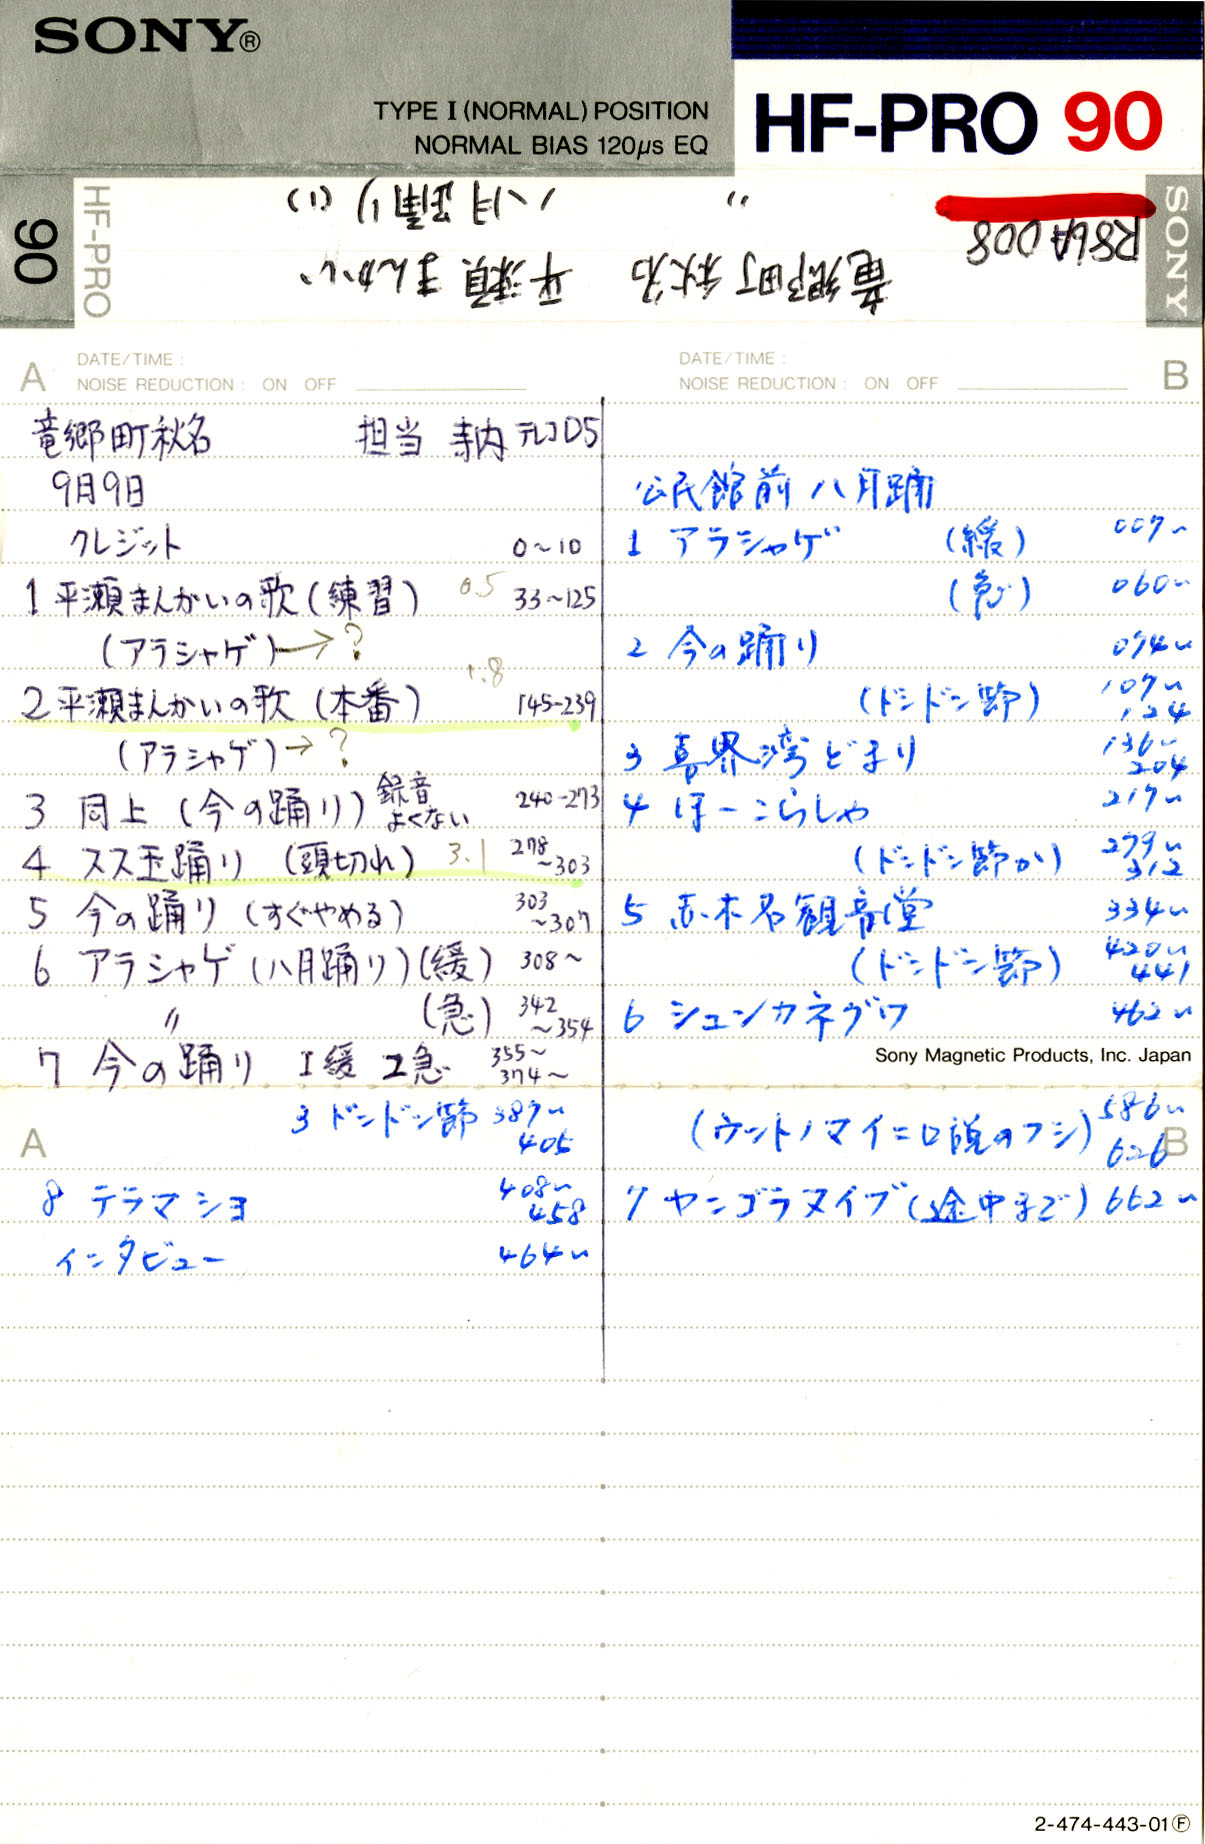 SONY®
TYPE I (NORMAL) POSITION
NORMAL BIAS 120μs EQ
HF-PRO 90
90
HF-PRO
SONY
R86A008
竜郷町秋名 平瀬まんかい
〃 八月踊り(1)
A
DATE/TIME :
NOISE REDUCTION : ON OFF
竜郷町秋名 担当 寺内 テレコD5
9月9日
クレジット 0~10
1 平瀬まんかいの歌(練習) 0.5 33~125
(アラシャゲ)→?
2 平瀬まんかいの歌(本番) 1.8 145-239
(アラシャゲ)→?
3 同上(今の踊り)録音よくない 240-273
4 スス玉踊り(頭切れ) 3.1 278~303
5 今の踊り(すぐやめる) 303~307
6 アラシャゲ(八月踊り)(緩) 308~
〃 (急) 342~354
7 今の踊り 1緩 2急 355~ 374~
3 ドンドン節 389~405
A
8 テラマショ 408~458
インタビュー 464~
DATE/TIME :
NOISE REDUCTION : ON OFF
B
公民館前 八月踊
1 アラシャゲ (緩) 009~
(急) 060~
2 今の踊り 094~
(ドンドン節) 109~124
3 喜界湾どまり 136~204
4 ほーこらしゃ 219~
(ドンドン節か) 299~312
5 赤木名観音堂 334~
(ドンドン節) 420~441
6 シュンカネグワ 462~
Sony Magnetic Products, Inc. Japan
(ウントノマイニロ説のフシ) 586~626
B
7 ヤンゴラヌイブ(途中まで) 662~
2-474-443-01Ⓕ